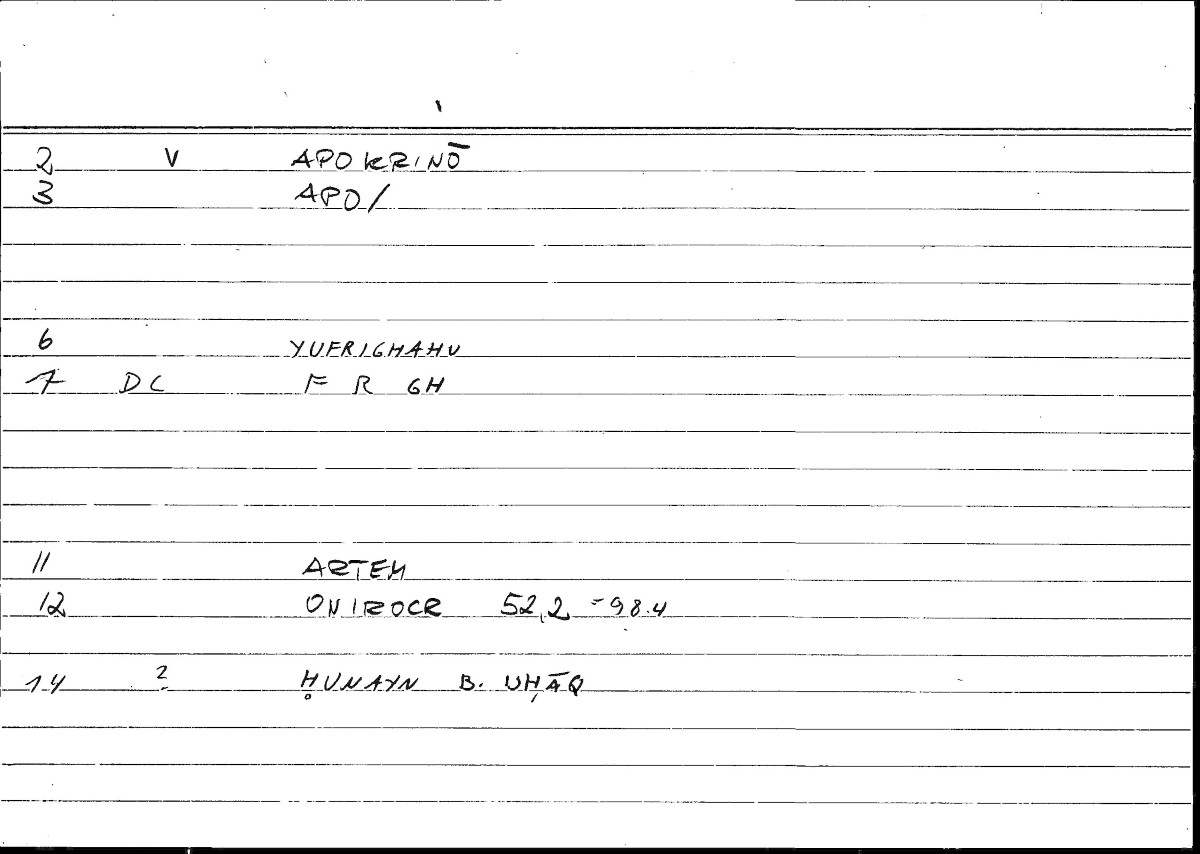 2 V APOKRINŌ
3 APO/
6 YUFRIGHAHU
7 DC F R GH
11 ARTEM
12 ONIROCR 52,2 = 98.4
14 ? ḤUNAYN B. UḤĀQ